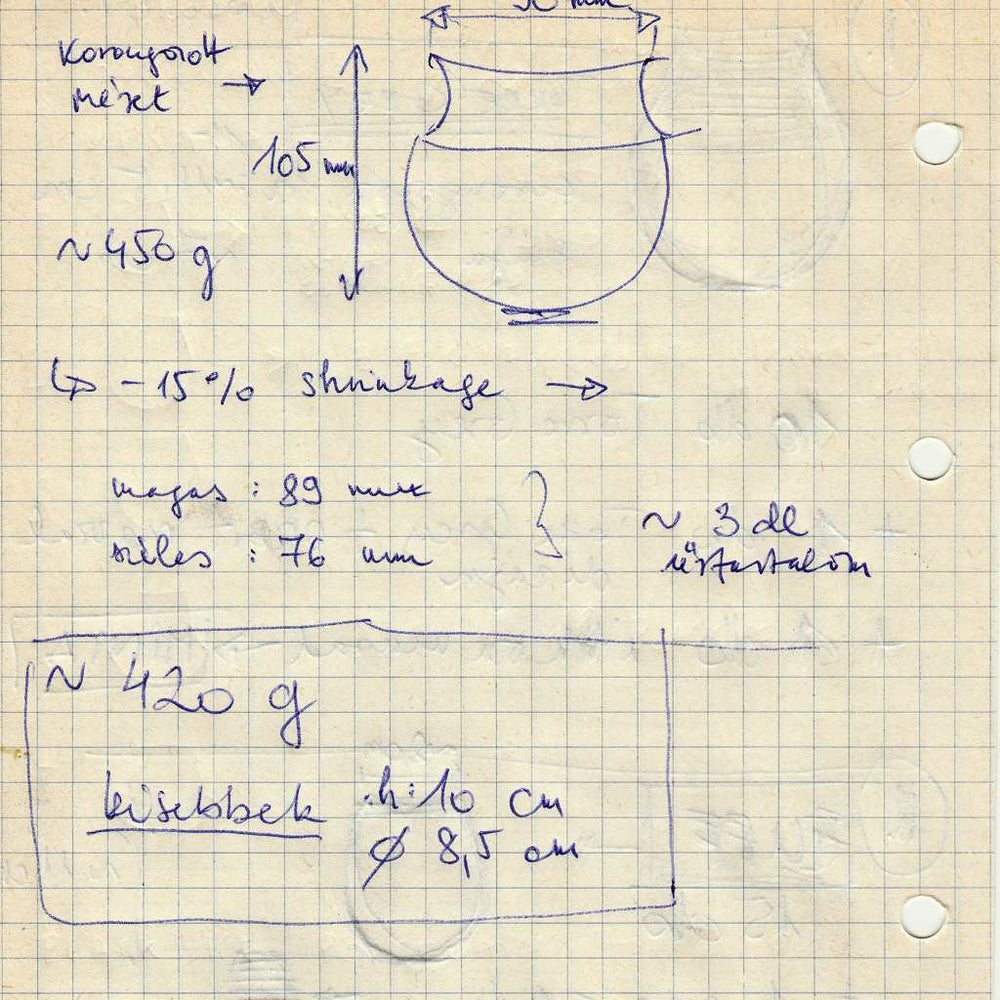 Korongozott
méret →
105 mm
~ 450 g
↳ -15% shrinkage →
magas : 89 mm
széles : 76 mm
~ 3 dl
űrtartalom
~ 420 g
kisebbek h: 10 cm
ø 8,5 cm